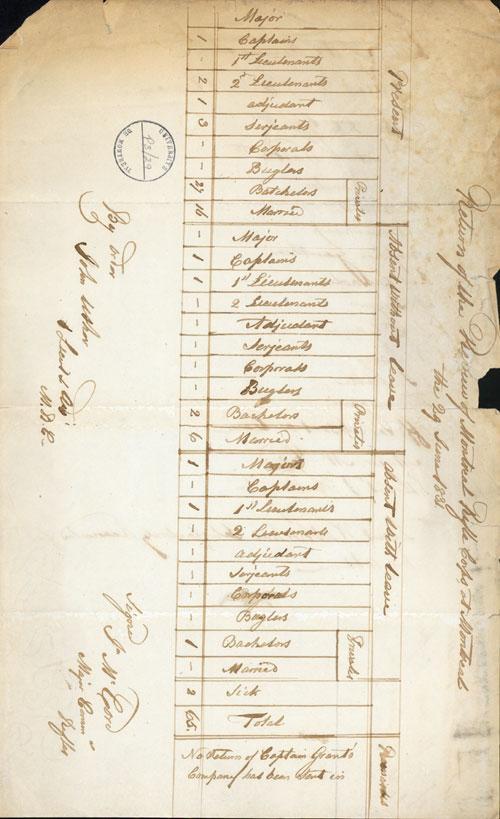 Return of the Review of Montreal Rifle Corps at Montreal
the 29 June 182
Present
Major
1 Captains
- 1st Lieutenants
2 2d Lieutenants
1 adjudant
3 Serjeants
- Corporals
- Buglers
Privates
27 Batchelors
16 Married
Absent Without leave
- Major
1 Captains
1 1st Lieutenants
- 2 Lieutenants
- Adjudant
- Serjeants
- Corporals
- Buglers
Privates
2 Bachelors
6 Married
absent With leave
1 Majors
- Captains
1 1st Lieutenants
- 2 Lieutenants
- adjudant
- Serjeants
- Corporals
- Buglers
Privates
1 Bachelors
- Married
2 Sick
65 Total
Remarks
No Return of Captain Grant's
Company has been sent in
By order
John
Lieut & Adjt
Signed
McCord
Major Comm
Rifles